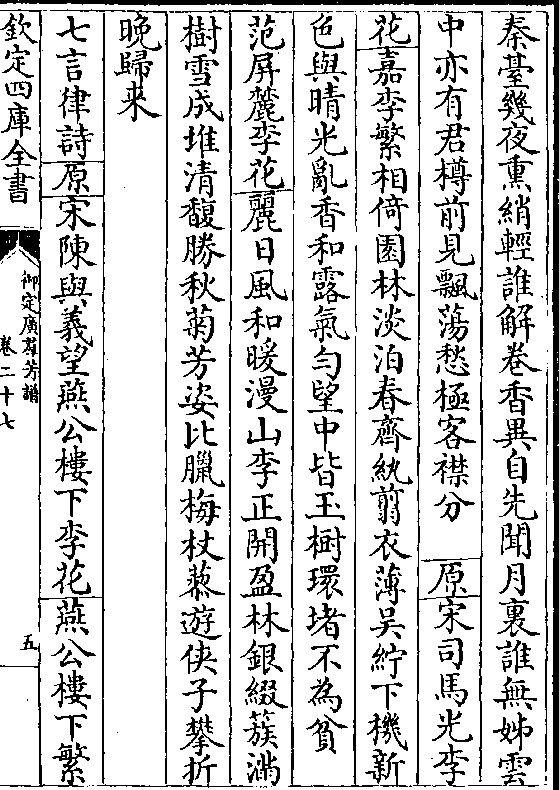 秦臺幾夜熏綃輕誰解卷香異自先聞月裏誰無姊雲
中亦有君樽前見飄蕩愁極客襟分　原宋司馬光李
花嘉李繁相倚園林淡泊春齊紈翦衣薄吳紵下機新
色與晴光亂香和露氣勻望中皆玉樹環堵不為貧
范屏麓李花麗日風和暖漫山李正開盈林銀綴簇滿
樹雪成堆清馥勝秋菊芳姿比臘梅杖藜遊俠子攀折
晚歸来
七言律詩原宋陳與義望燕公樓下李花燕公樓下繁
欽定四庫全書
御定廣羣芳譜
卷二十七
五